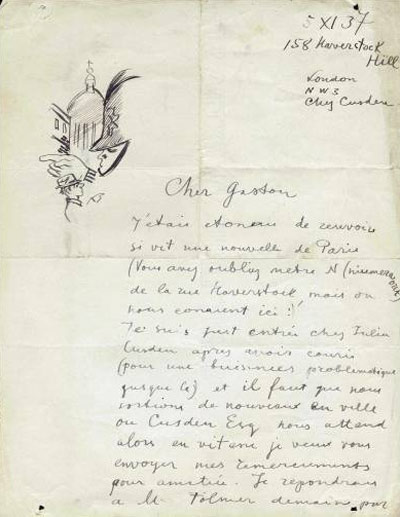 5 XI 37
158 Haverstock
Hill
London
N W 3
Chez Cusden
Cher Gaston
J'étais etoneu de recevoir
si vit une nouvelle de Paris
(Vous avez oubliez metre N (
de la rue Haverstock mais on
nous conaient ici!)
Je suis just entré chez Julia
Cusden apres avois couru
(pour une buisnees problematique
jusque là) et il faut que nous
sortions de nouveaux en ville
ou Cusden Esq nous attend
alors en vitesse je veux vous
envoyer mes remerciements
pour amitiée. Je repondrais
a M. Tolmer demain par